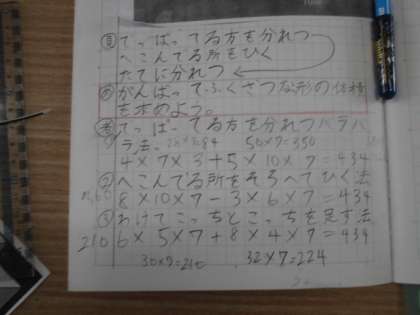 ㋯てっぱってる方を分れつ
へこんでる所をひく
たてに分れつ
㋱がんばってふくざつな形の体積
を求めよう。
㋕てっぱってる方を分れつバラバ
ラ法。28×3=84 50×7=350
4×7×3+5×10×7=434
②へこんでる所をそろへてひく法
8×10×7-3×6×7=434
③わけてこっちとこっちを足す法
210 6×5×7+8×4×7=434
30×7=210 32×7=224